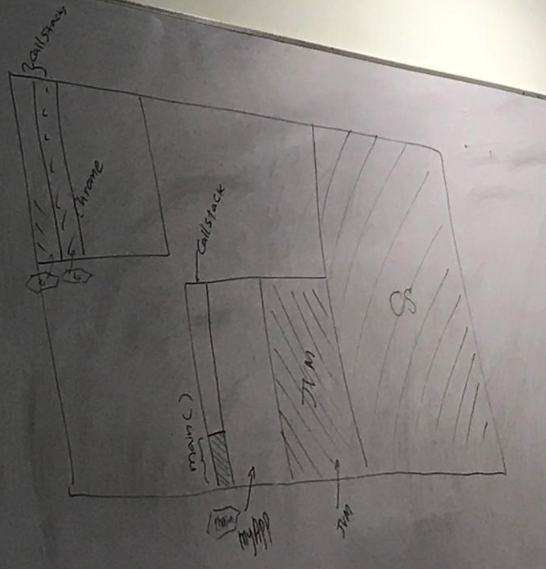 Callstack
Chrome
Callstack
OS
JVM
main()
Main
myApp
JVM